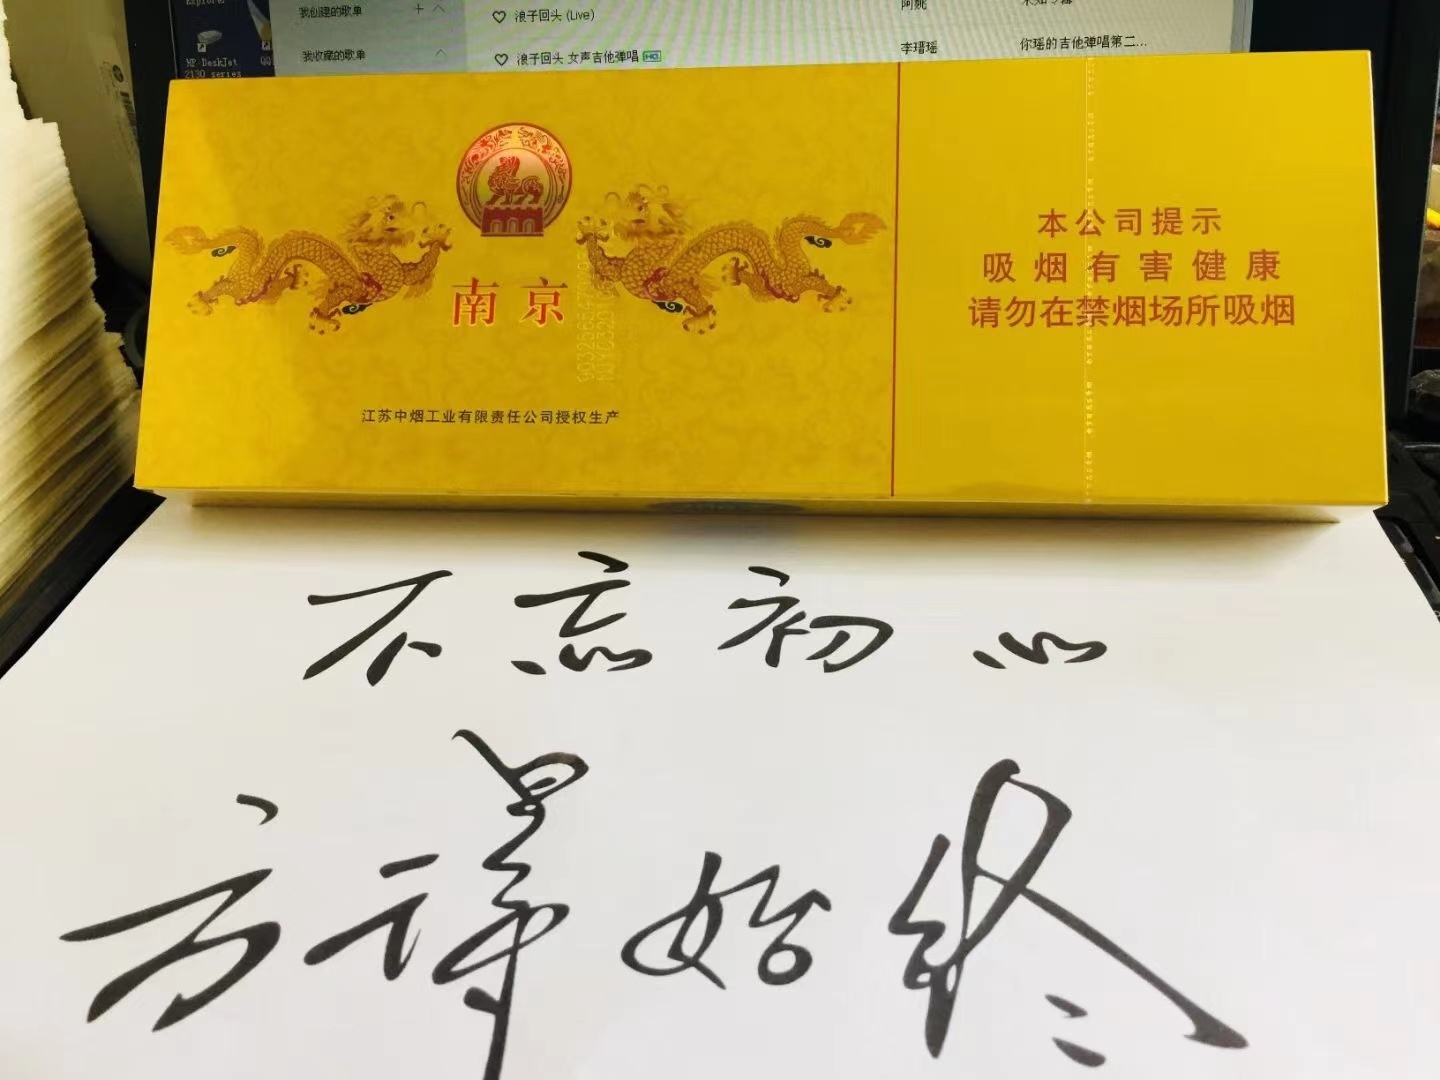 我创建的歌单
浪子回头 (Live)
阿姚
HP DeskJet
2130 series
QQ
我收藏的歌单
浪子回头 女声吉他弹唱 HQ
李瑨瑶
你瑶的吉他弹唱第二...
南京
江苏中烟工业有限责任公司授权生产
本公司提示
吸烟有害健康
请勿在禁烟场所吸烟
不忘初心
方得始终